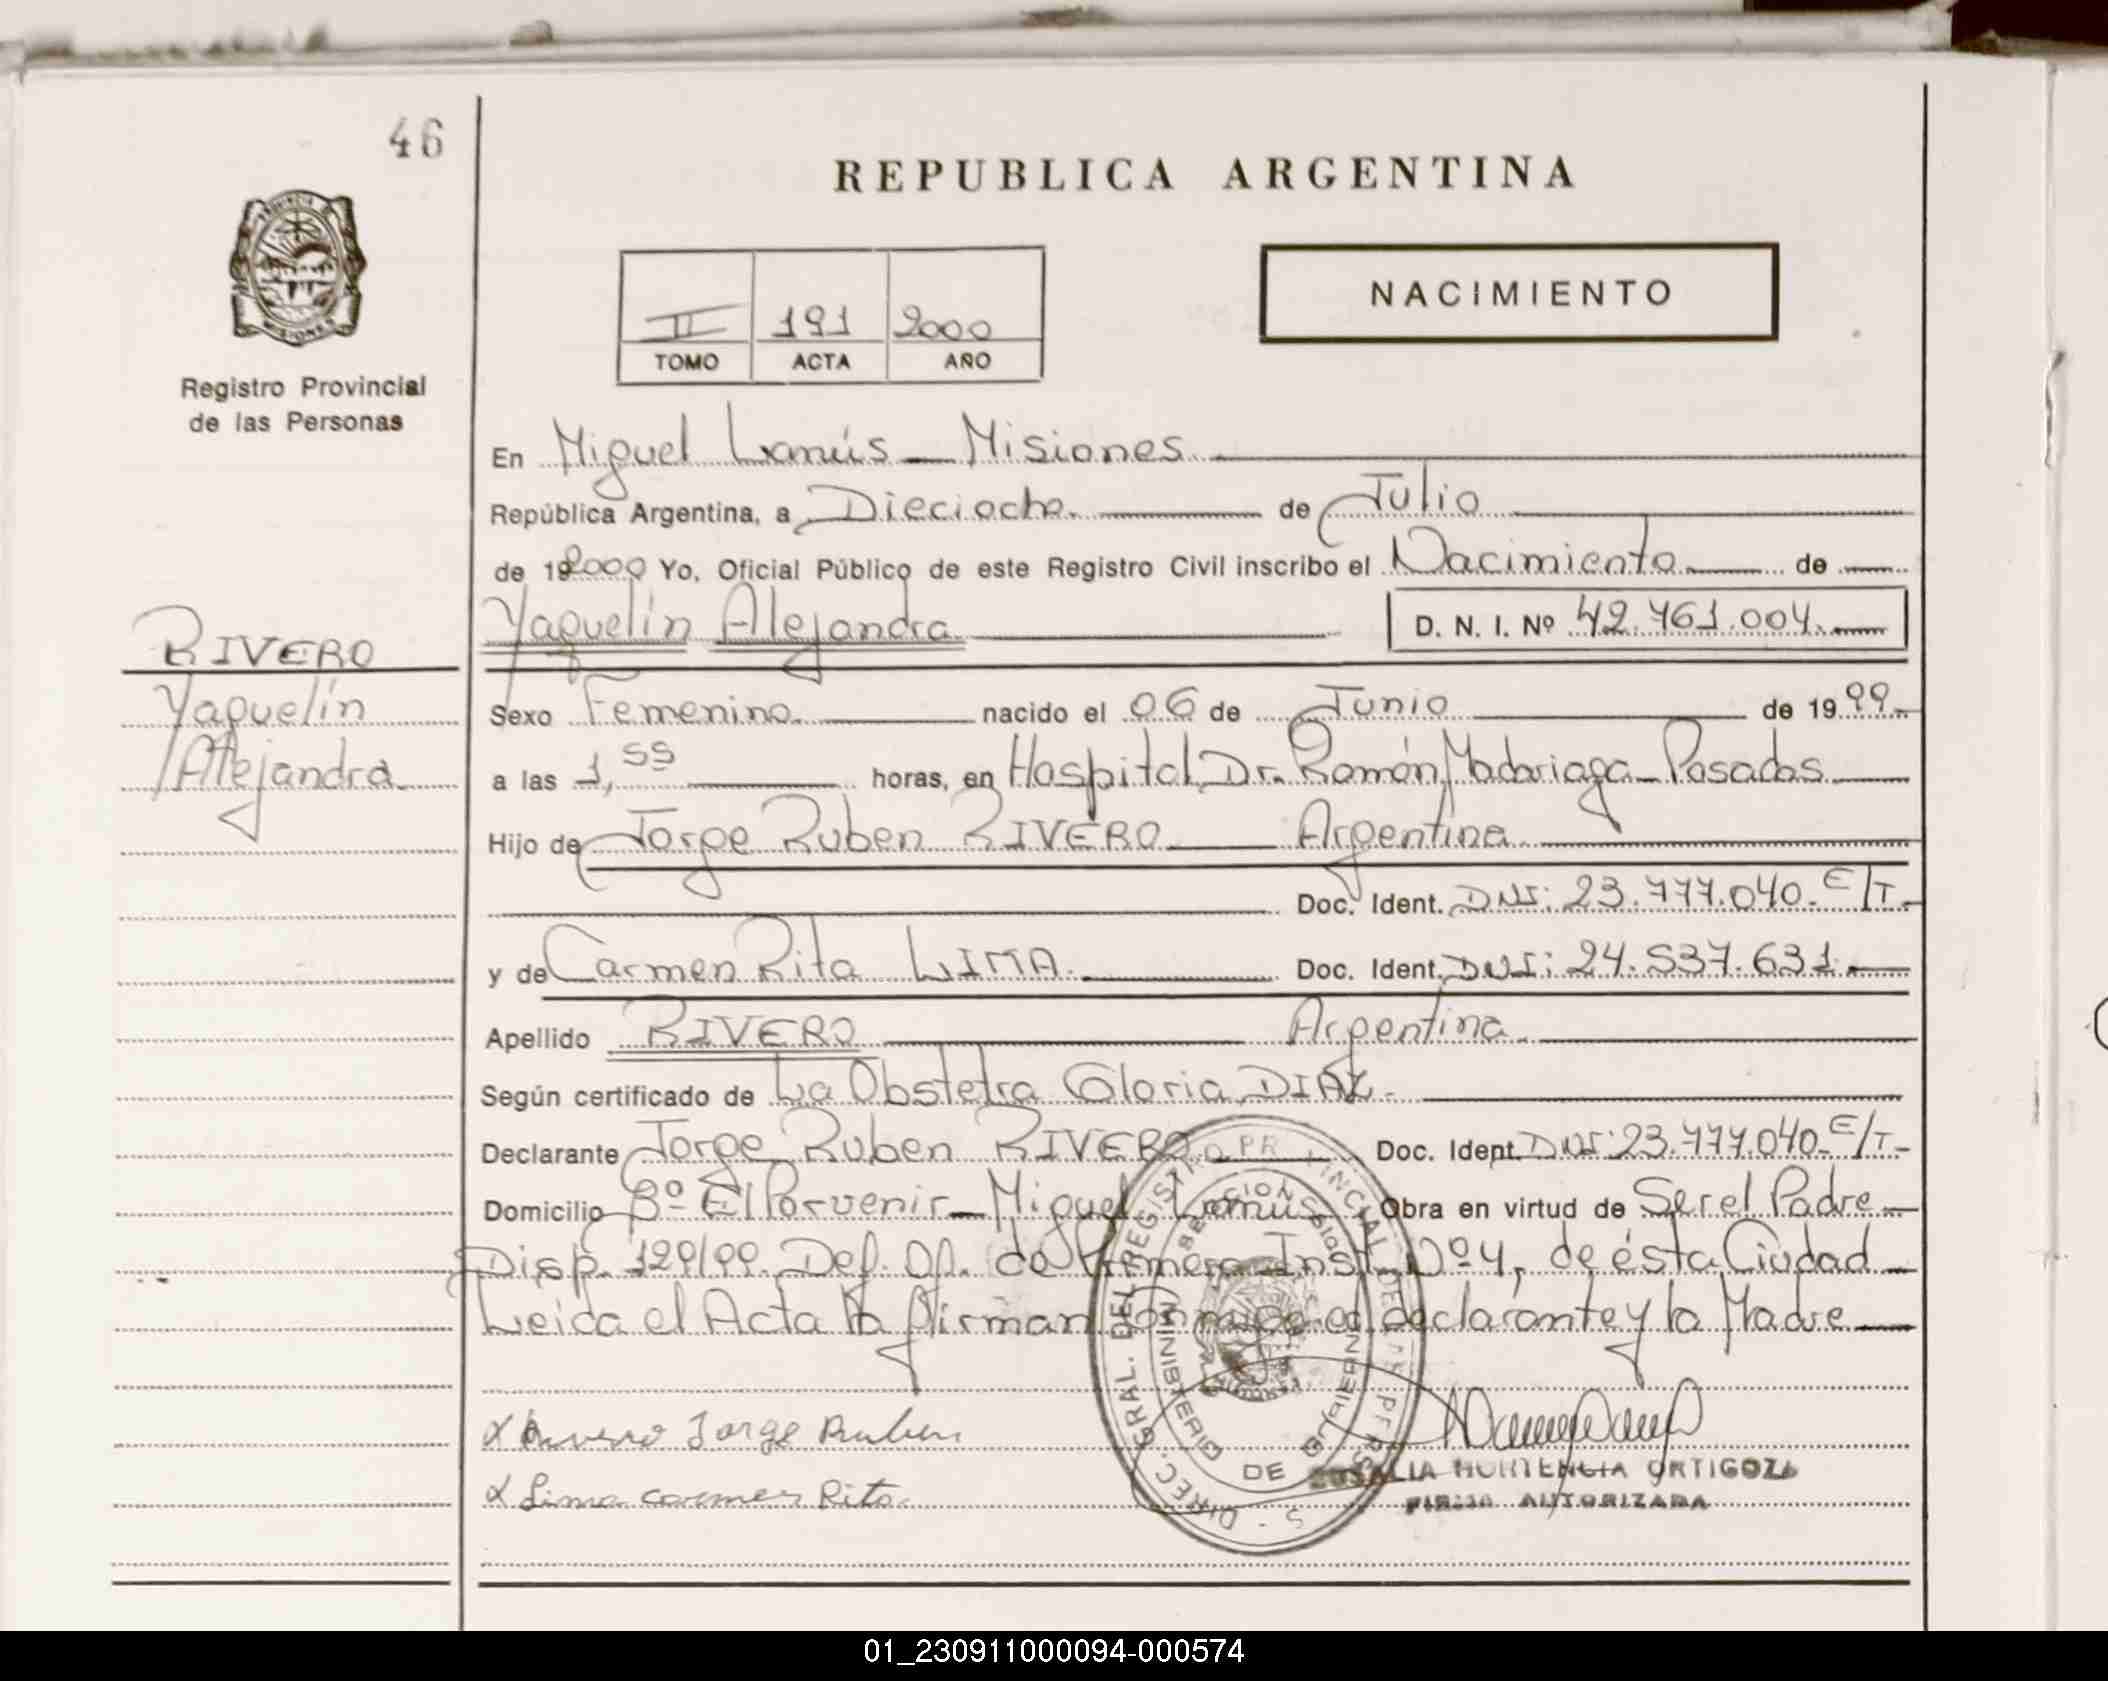 46
REPUBLICA ARGENTINA
NACIMIENTO
II 191 2000
TOMO ACTA AÑO
MISIONES
Registro Provincial
de las Personas
En Miguel Lanús - Misiones
República Argentina, a Dieciocho de Julio
de 192000 Yo, Oficial Público de este Registro Civil inscribo el Nacimiento de
Yaquelín Alejandra D. N. I. Nº 42.761.004
RIVERO
Yaquelín
Alejandra
Sexo Femenino nacido el 06 de Junio de 1999
a las 1,55 horas, en Hospital Dr. Ramón Madariaga - Posadas
Hijo de Jorge Ruben RIVERO Argentina
Doc. Ident. DNI: 23.777.040. E/T.
y de Carmen Rita LIMA Doc. Ident. DNI: 24.537.631
Apellido RIVERO Argentina
Según certificado de La Obstetra Gloria DIAZ.
Declarante Jorge Ruben RIVERO Doc. Ident. DNI: 23.777.040 E/T
Domicilio Bº El Porvenir - Miguel Lanús Obra en virtud de Ser el Padre
Disp. 129/99. Def. Of. de Primera Inst. Nº 4, de ésta Ciudad
Leída el Acta la firman conmigo el declarante y la Madre
x Rivero Jorge Ruben
x Lima carmen Rita
DIREC. GRAL. DEL REGISTRO PROVINCIAL DE LAS PERS
MINISTERIO DE GOBIERNO
ROSALIA HORTENCIA ORTIGOZA
FIRMA AUTORIZADA
01_230911000094-000574